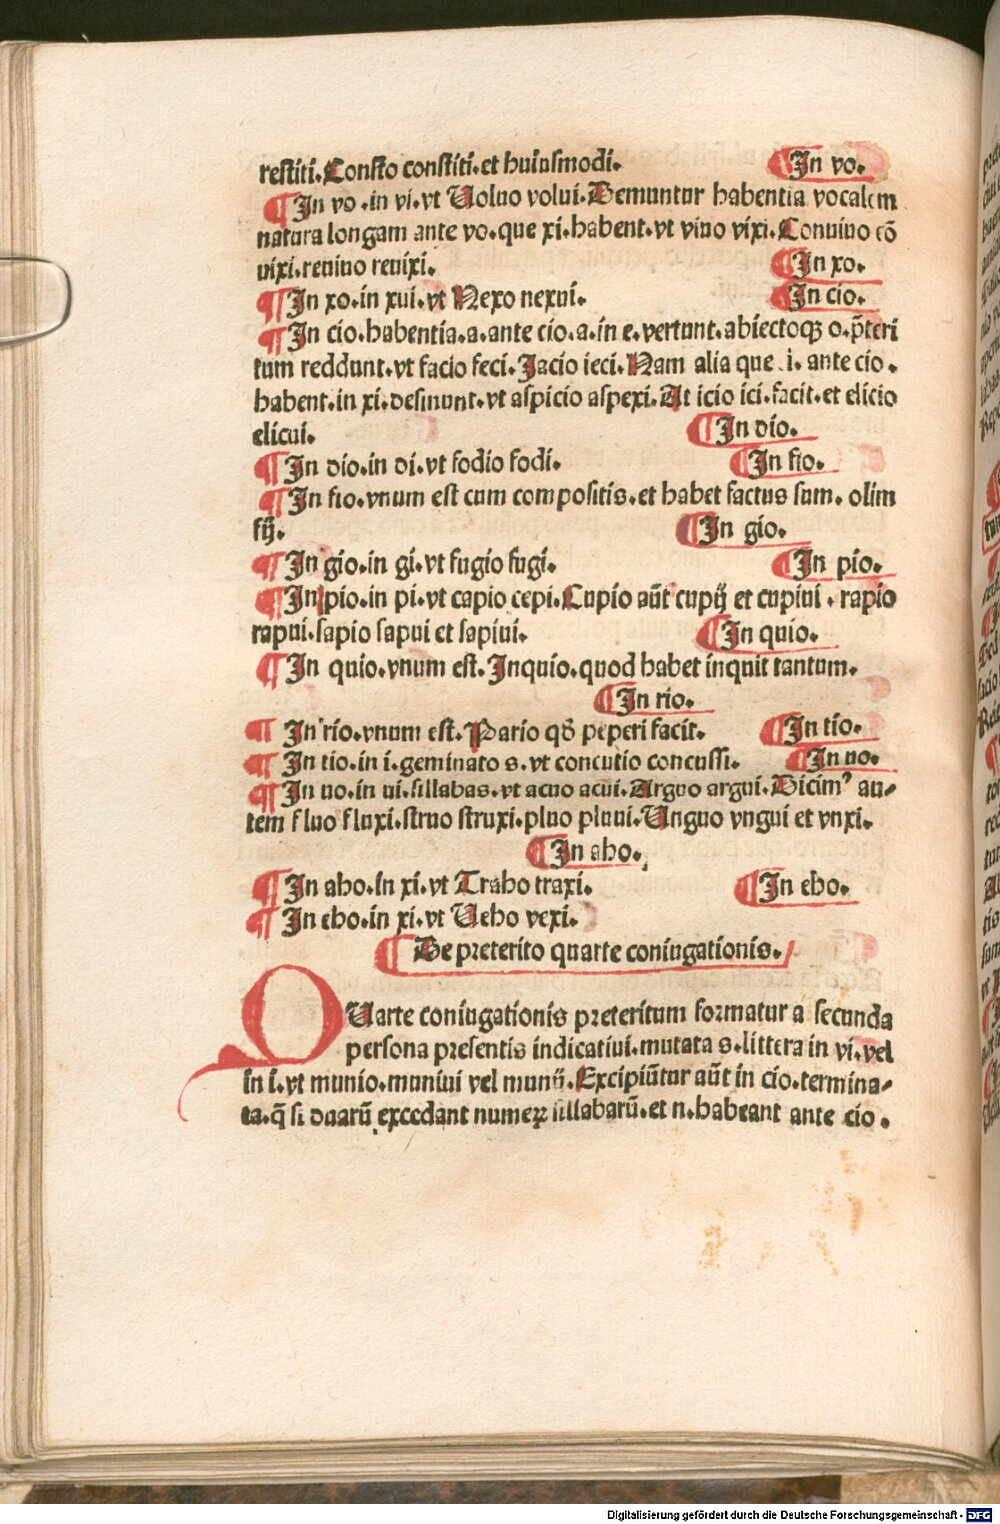 restiti. Consto constiti. et huiusmodi. ¶ In vo.
¶ In vo. in vi. vt Uoluo volui. Demuntur habentia vocalem
natura longam ante vo. que xi. habent. vt viuo vixi. Conuiuo cō
vixi. reuiuo reuixi. ¶ In xo.
¶ In xo. in xui. vt Nexo nexui. ¶ In cio.
¶ In cio. habentia. a. ante cio. a. in e. vertunt. abiectoqꝫ o. p̄teri
tum reddunt. vt facio feci. Jacio ieci. Nam alia que .i. ante cio.
habent. in xi. desinunt. vt aspicio aspexi. At icio ici. facit. et elicio
elicui. ¶ In dio.
¶ In dio. in di. vt fodio fodi. ¶ In fio.
¶ In fio. vnum est cum compositis. et habet factus sum. olim
fij. ¶ In gio.
¶ In gio. in gi. vt fugio fugi. ¶ In pio.
¶ In pio. in pi. vt capio cepi. Cupio aūt cupij et cupiui. rapio
rapui. sapio sapui et sapiui. ¶ In quio.
¶ In quio. vnum est. Inquio. quod habet inquit tantum.
¶ In rio.
¶ In rio. vnum est. Pario qđ peperi facit. ¶ In tio.
¶ In tio. in i. geminato s. vt concutio concussi. ¶ In uo.
¶ In uo. in ui. sillabas. vt acuo acui. Arguo argui. Dicimꝰ au-
tem fluo fluxi. struo struxi. pluo plui. Unguo vngui et vnxi.
¶ In aho.
¶ In aho. in xi. vt Traho traxi. ¶ In eho.
¶ In eho. in xi. vt Ueho vexi.
¶ De preterito quarte coniugationis.
QUarte coniugationis preteritum formatur a secunda
persona presentis indicatiui. mutata s. littera in vi. vel
in i. vt munio. muniui vel munij. Excipiūtur aūt in cio. termina-
ta. q̄ si duarū excedant numeꝝ sillabarū. et n. habeant ante cio.
Digitalisierung gefördert durch die Deutsche Forschungsgemeinschaft - DFG